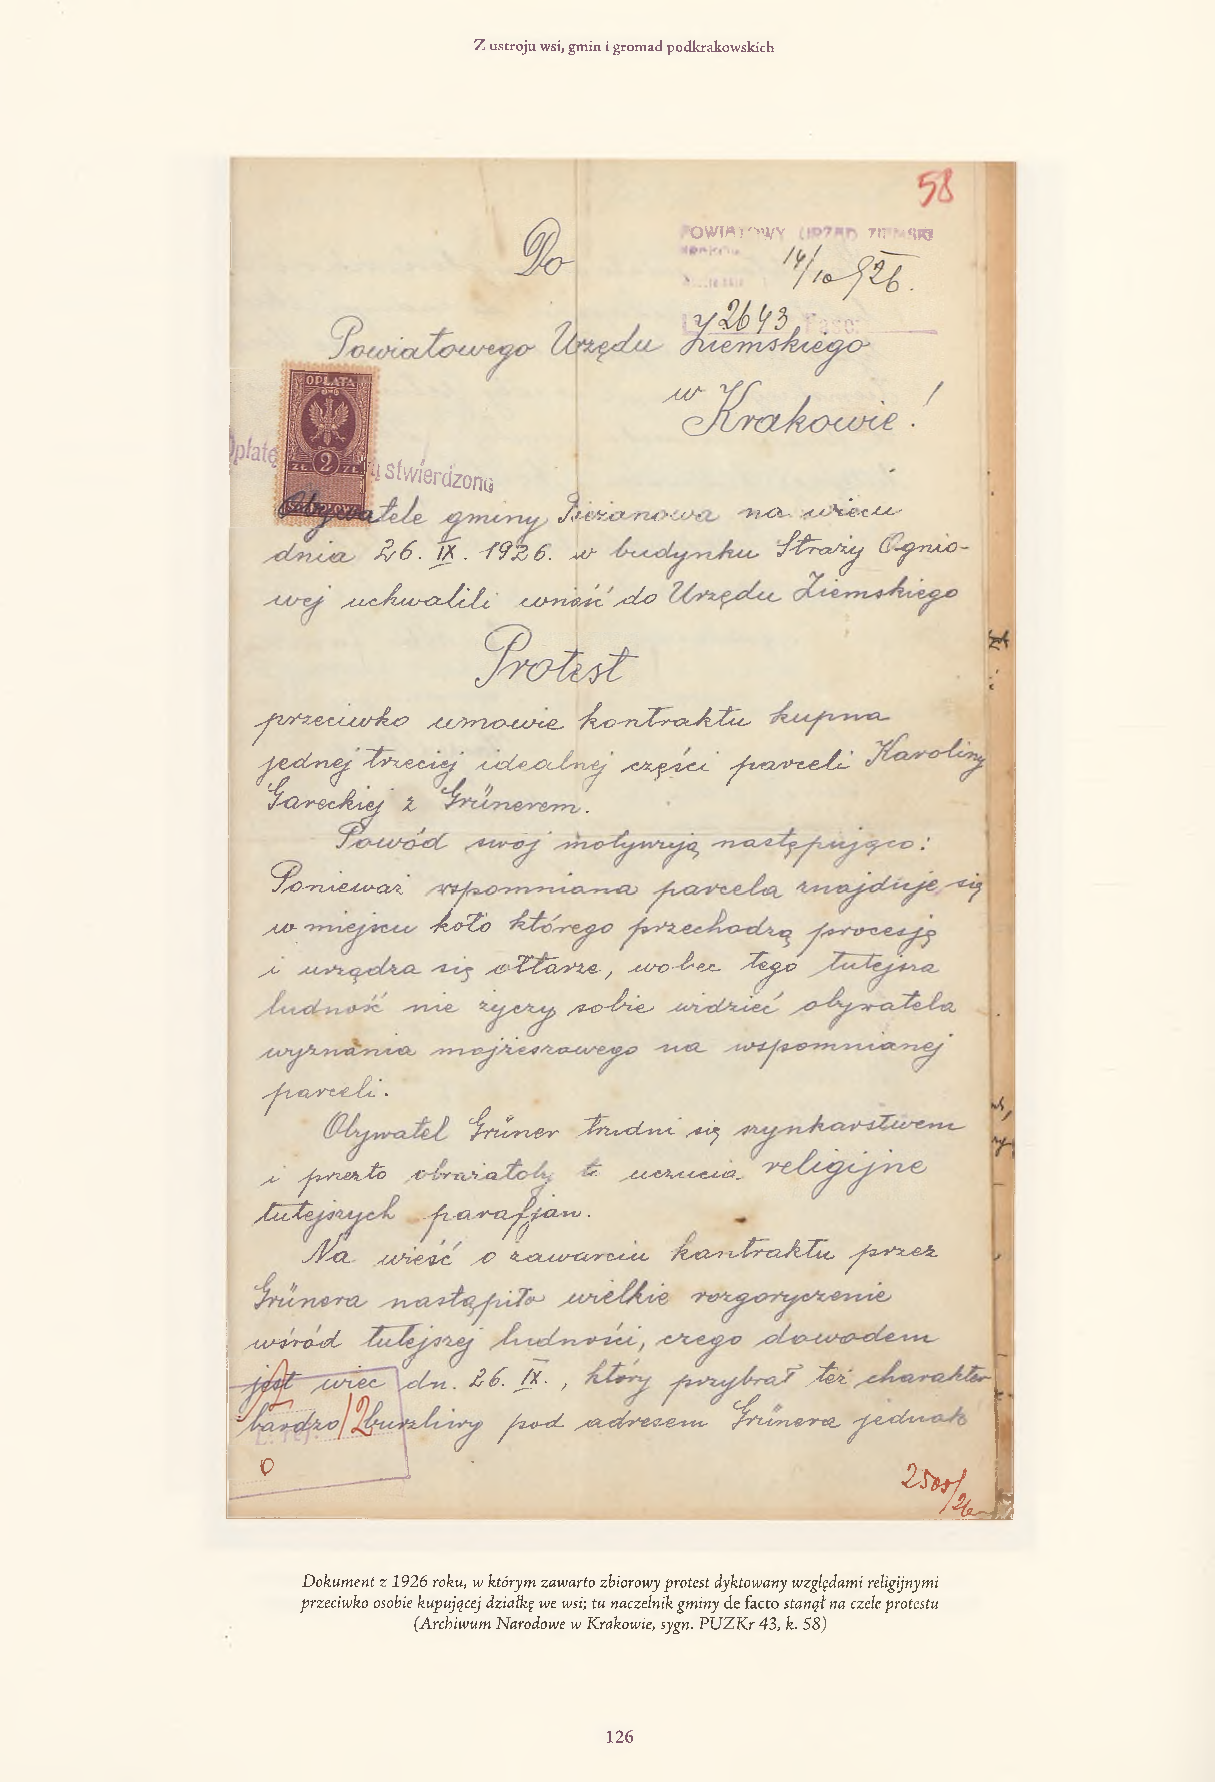 Z ustroju wsi, gmin i gromad podkrakowskich
58
Do
POWIATOWY URZĄD ZIEMSKI
14/10 926.
2643
Powiatowego Urzędu Ziemskiego
w Krakowie!
OPŁATA
ZŁ 2 ZŁ
stwierdzono
Obywatele gminy Bieżanowa na wiecu
dnia 26. IX. 1926. w budynku Straży Ognio-
wej uchwalili wnieść do Urzędu Ziemskiego
Protest
przeciwko umowie kontraktu kupna
jednej trzeciej idealnej części parceli Karoliny
Gareckiej z Grünerem.
Powód swój motywują następująco:
Ponieważ wspomniana parcela znajduje się
w miejscu koło którego przechodzą procesję
i urządza się ołtarze, wobec tego tutejsza
ludność nie życzy sobie widzieć obywatela
wyznania mojżeszowego na wspomnianej
parceli.
Obywatel Grüner trudni się szynkarstwem
i przezto obrażałoby to uczucia religijne
tutejszych parafjan.
Na wieść o zawarciu kontraktu przez
Grünera nastąpiło wielkie rozgoryczenie
wśród tutejszej ludności, czego dowodem
jest wiec dn. 26. IX., który przybrał też charakter
bardzo burzliwy pod adresem Grünera jednak
2500/26
Dokument z 1926 roku, w którym zawarto zbiorowy protest dyktowany względami religijnymi
przeciwko osobie kupującej działkę we wsi; tu naczelnik gminy de facto stanął na czele protestu
(Archiwum Narodowe w Krakowie, sygn. PUZKr 43, k. 58)
126